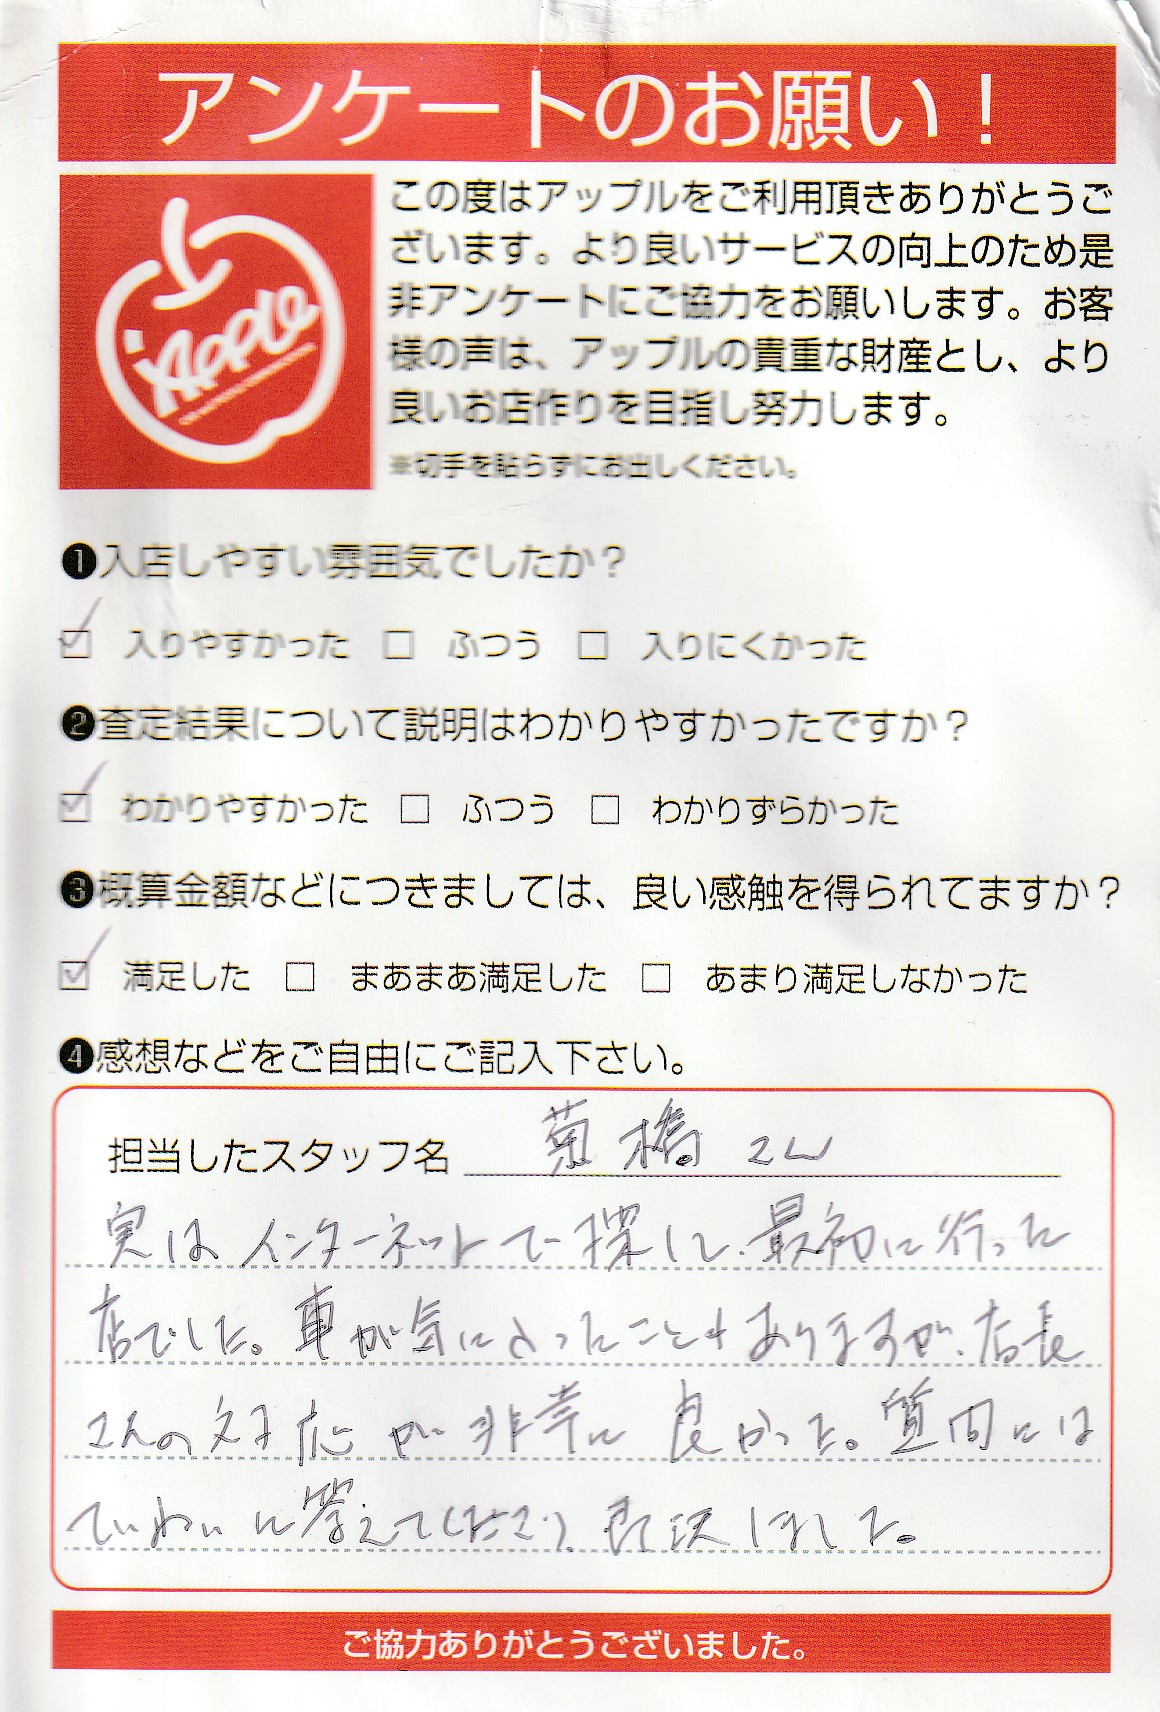 アンケートのお願い！
Apple
この度はアップルをご利用頂きありがとうご
ざいます。より良いサービスの向上のため是
非アンケートにご協力をお願いします。お客
様の声は、アップルの貴重な財産とし、より
良いお店作りを目指し努力します。
※切手を貼らずにお出しください。
❶入店しやすい雰囲気でしたか？
☑ 入りやすかった □ ふつう □ 入りにくかった
❷査定結果について説明はわかりやすかったですか？
☑ わかりやすかった □ ふつう □ わかりずらかった
❸概算金額などにつきましては、良い感触を得られてますか？
☑ 満足した □ まあまあ満足した □ あまり満足しなかった
❹感想などをご自由にご記入下さい。
担当したスタッフ名 菊橋さん
実はインターネットで探して、最初に行った
店でした。車が気に入ったこともありますが、店長
さんの対応が非常に良かった。質問には
ていねいに答えてくださり、即決しました。
ご協力ありがとうございました。